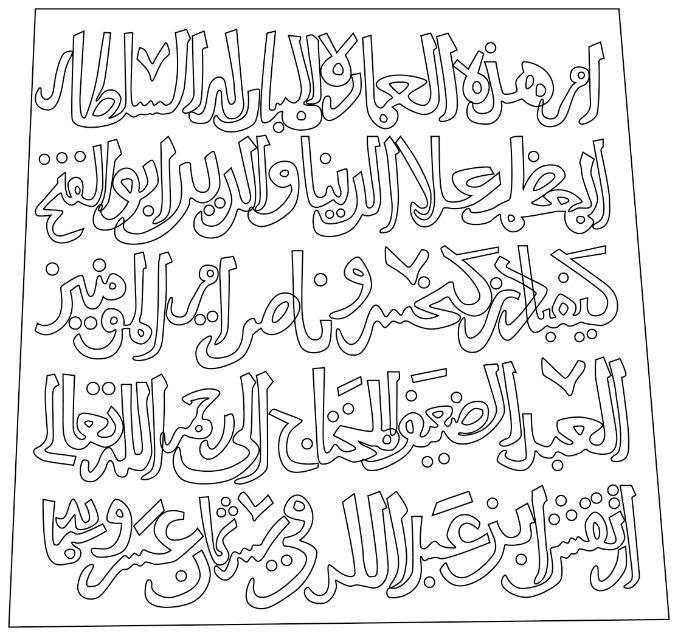 امر هذه العمارة المباركة السلطان
المعظم علا الدنيا والدين ابو الفتح
كيقباد بن كيخسرو ناصر امير المومنين
العبد الضعيف المحتاج الى رحمة الله تعالى
بن عبد الله في سنة ثمان عشر